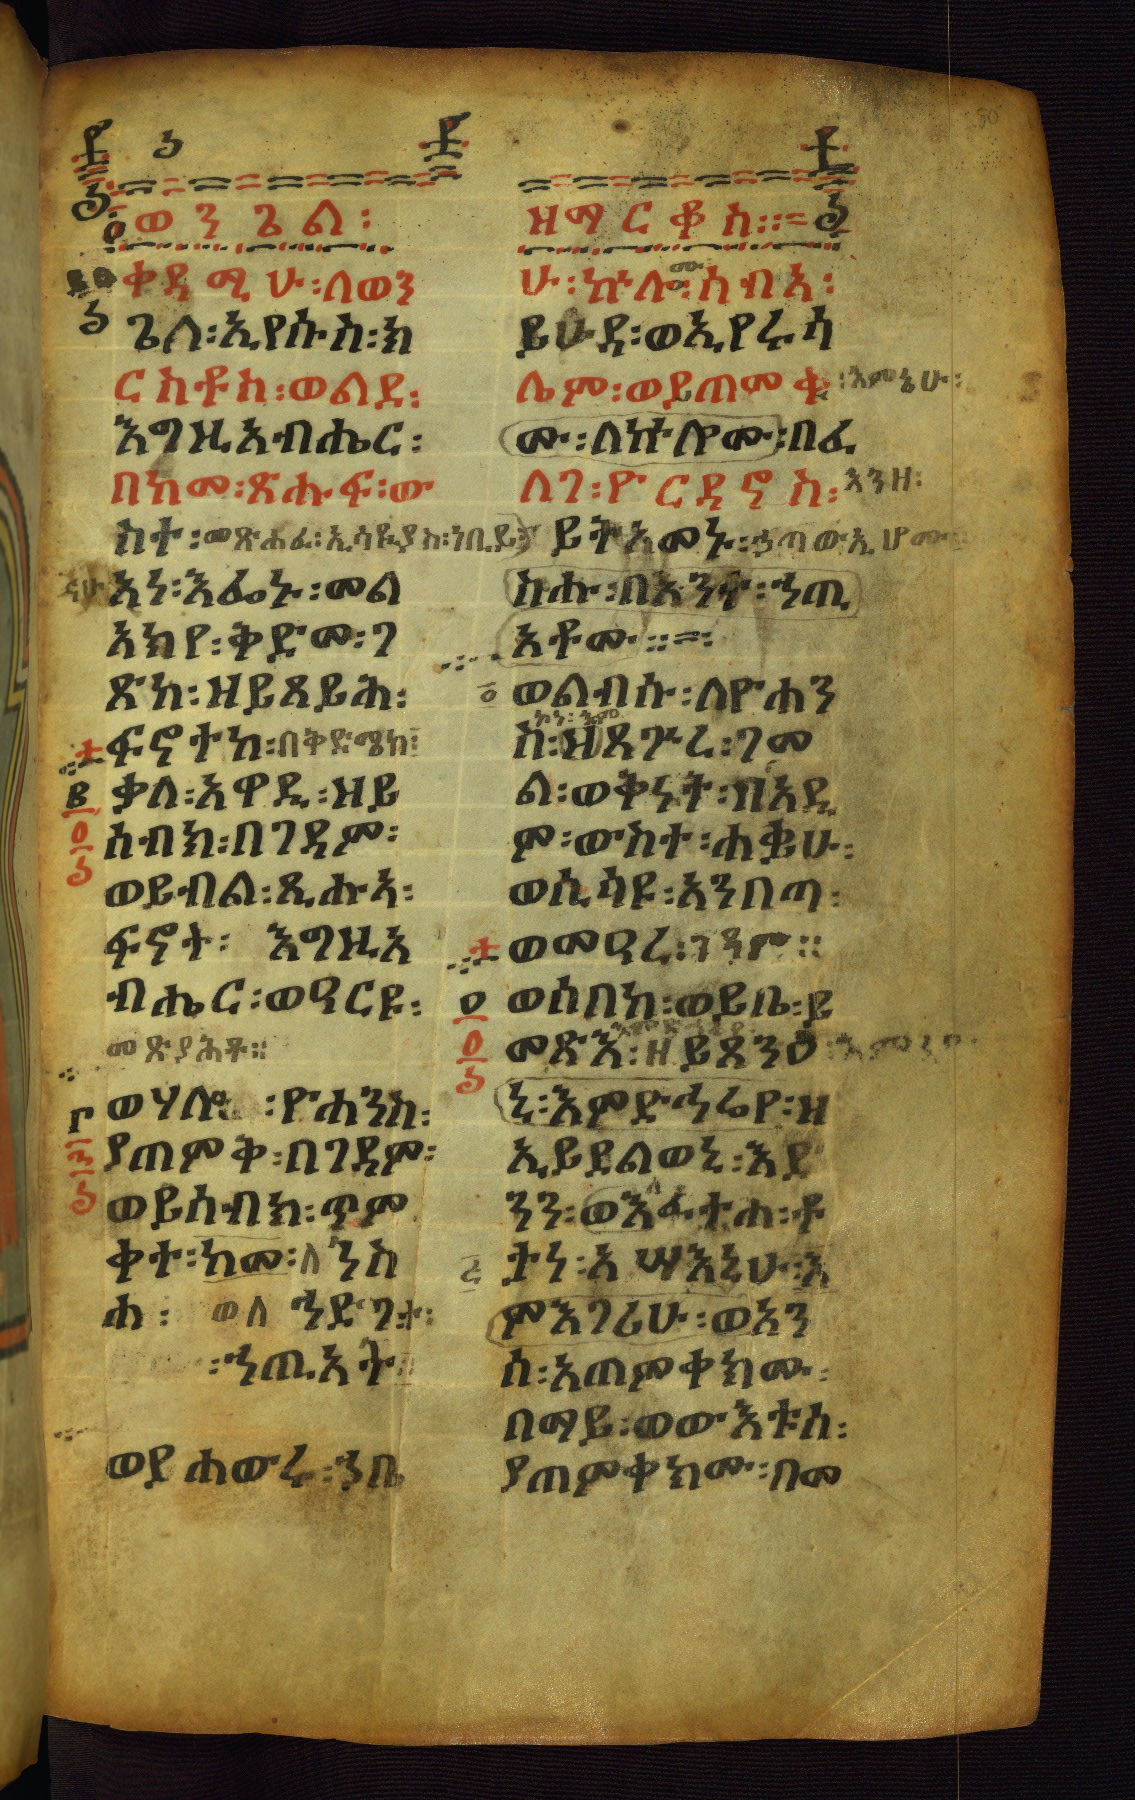 ወንጌል፡
ቀዳሚሁ፡ለወን
ጌለ፡ኢየሱስ፡ክ
ርስቶስ፡ወልደ፡
እግዚአብሔር፡
በከመ፡ጽሑፍ፡ው
ስተ፡መጽሐፈ፡ኢሳይያስ፡ነቢይ፡
እነ፡እፌኑ፡መል
አክየ፡ቅድመ፡ገ
ጽከ፡ዘይጸይሕ፡
ፍኖተከ፡በቅድሜከ፡
ቃለ፡አዋዲ፡ዘይ
ሰብክ፡በገዳም፡
ወይብል፡ጺሑአ፡
ፍኖተ፡ እግዚአ
ብሔር፡ወዓርዩ፡
መጽያሕቶ።
ወሃሎ ፡ዮሐንስ፡
ያጠምቅ፡በገዳም፡
ወይሰብክ፡ጥም
ቀተ፡ከመ፡ለንስ
ሐ፡ ወለ ኅድገተ፡
፡ኀጢአት
ወየሐውሩ፡ኀቤ
ዘማርቆስ።=
ሁ፡ኵሎ፡ሰብአ፡
ይሁዳ፡ወኢየሩሳ
ሌም፡ወይጠምቁ፡እምኔሁ፡
ሙ፡ለኵሎሙ፡በፈ
ለገ፡ዮርዳኖስ፡እንዘ፡
ይትአመኑ፡ኃጣውኢሆሙ
ስሑ፡በእንተ፡ኀጢ
አቶሙ።=፡
ወልብሱ፡ለዮሐን
ስ፡ዘጸጕረ፡ገመ
ል፡ወቅነት፡በአዲ
ም፡ውስተ፡ሐቌሁ፡
ወሲሳዩ፡አንበጣ፡
ወመዓረ፡ገዳም።
ወሰበከ፡ወይቤ፡ይ
መጽእ፡ዘይጸንዕ
ኒ፡እምድኅሬየ፡ዘ
ኢይደልወኒ፡እድ
ንን፡ወእፍታሕ፡ቶ
ታነ፡አሣእኒሁ፡እ
ምእገሪሁ፡ወአን
ሰ፡አጠምቀክሙ፡
በማይ፡ወውእቱሰ፡
ያጠምቀክሙ፡በመ